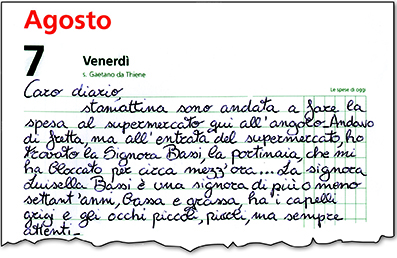 Agosto
7
Venerdì
s. Gaetano da Thiene
Le spese di oggi
Caro diario,
stamattina sono andata a fare la
spesa al supermercato qui all'angolo. Andavo
di fretta, ma all'entrata del supermercato, ho
trovato la Signora Bassi, la portinaia, che mi
ha bloccato per circa mezz'ora... La signora
Luisella Bassi è una signora di più o meno
settant'anni, bassa e grassa, ha i capelli
grigi e gli occhi piccoli, piccoli, ma sempre
attenti.